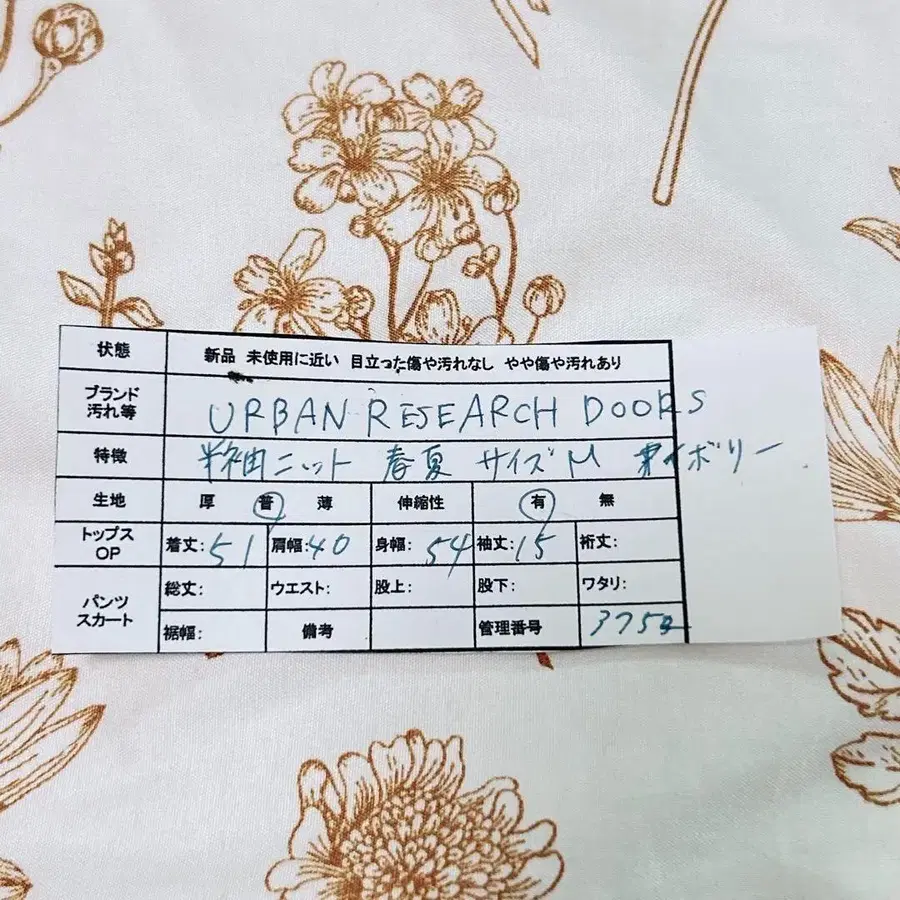 状態 新品 未使用に近い 目立った傷や汚れなし やや傷や汚れあり
ブランド
汚れ等 URBAN RESEARCH DOORS
特徴 半袖ニット 春夏 サイズM アイボリー
生地 厚 普 薄 伸縮性 有 無
トップス
OP 着丈:51 肩幅:40 身幅:54 袖丈:15 裄丈:
パンツ
スカート 総丈: ウエスト: 股上: 股下: ワタリ:
裾幅: 備考 管理番号